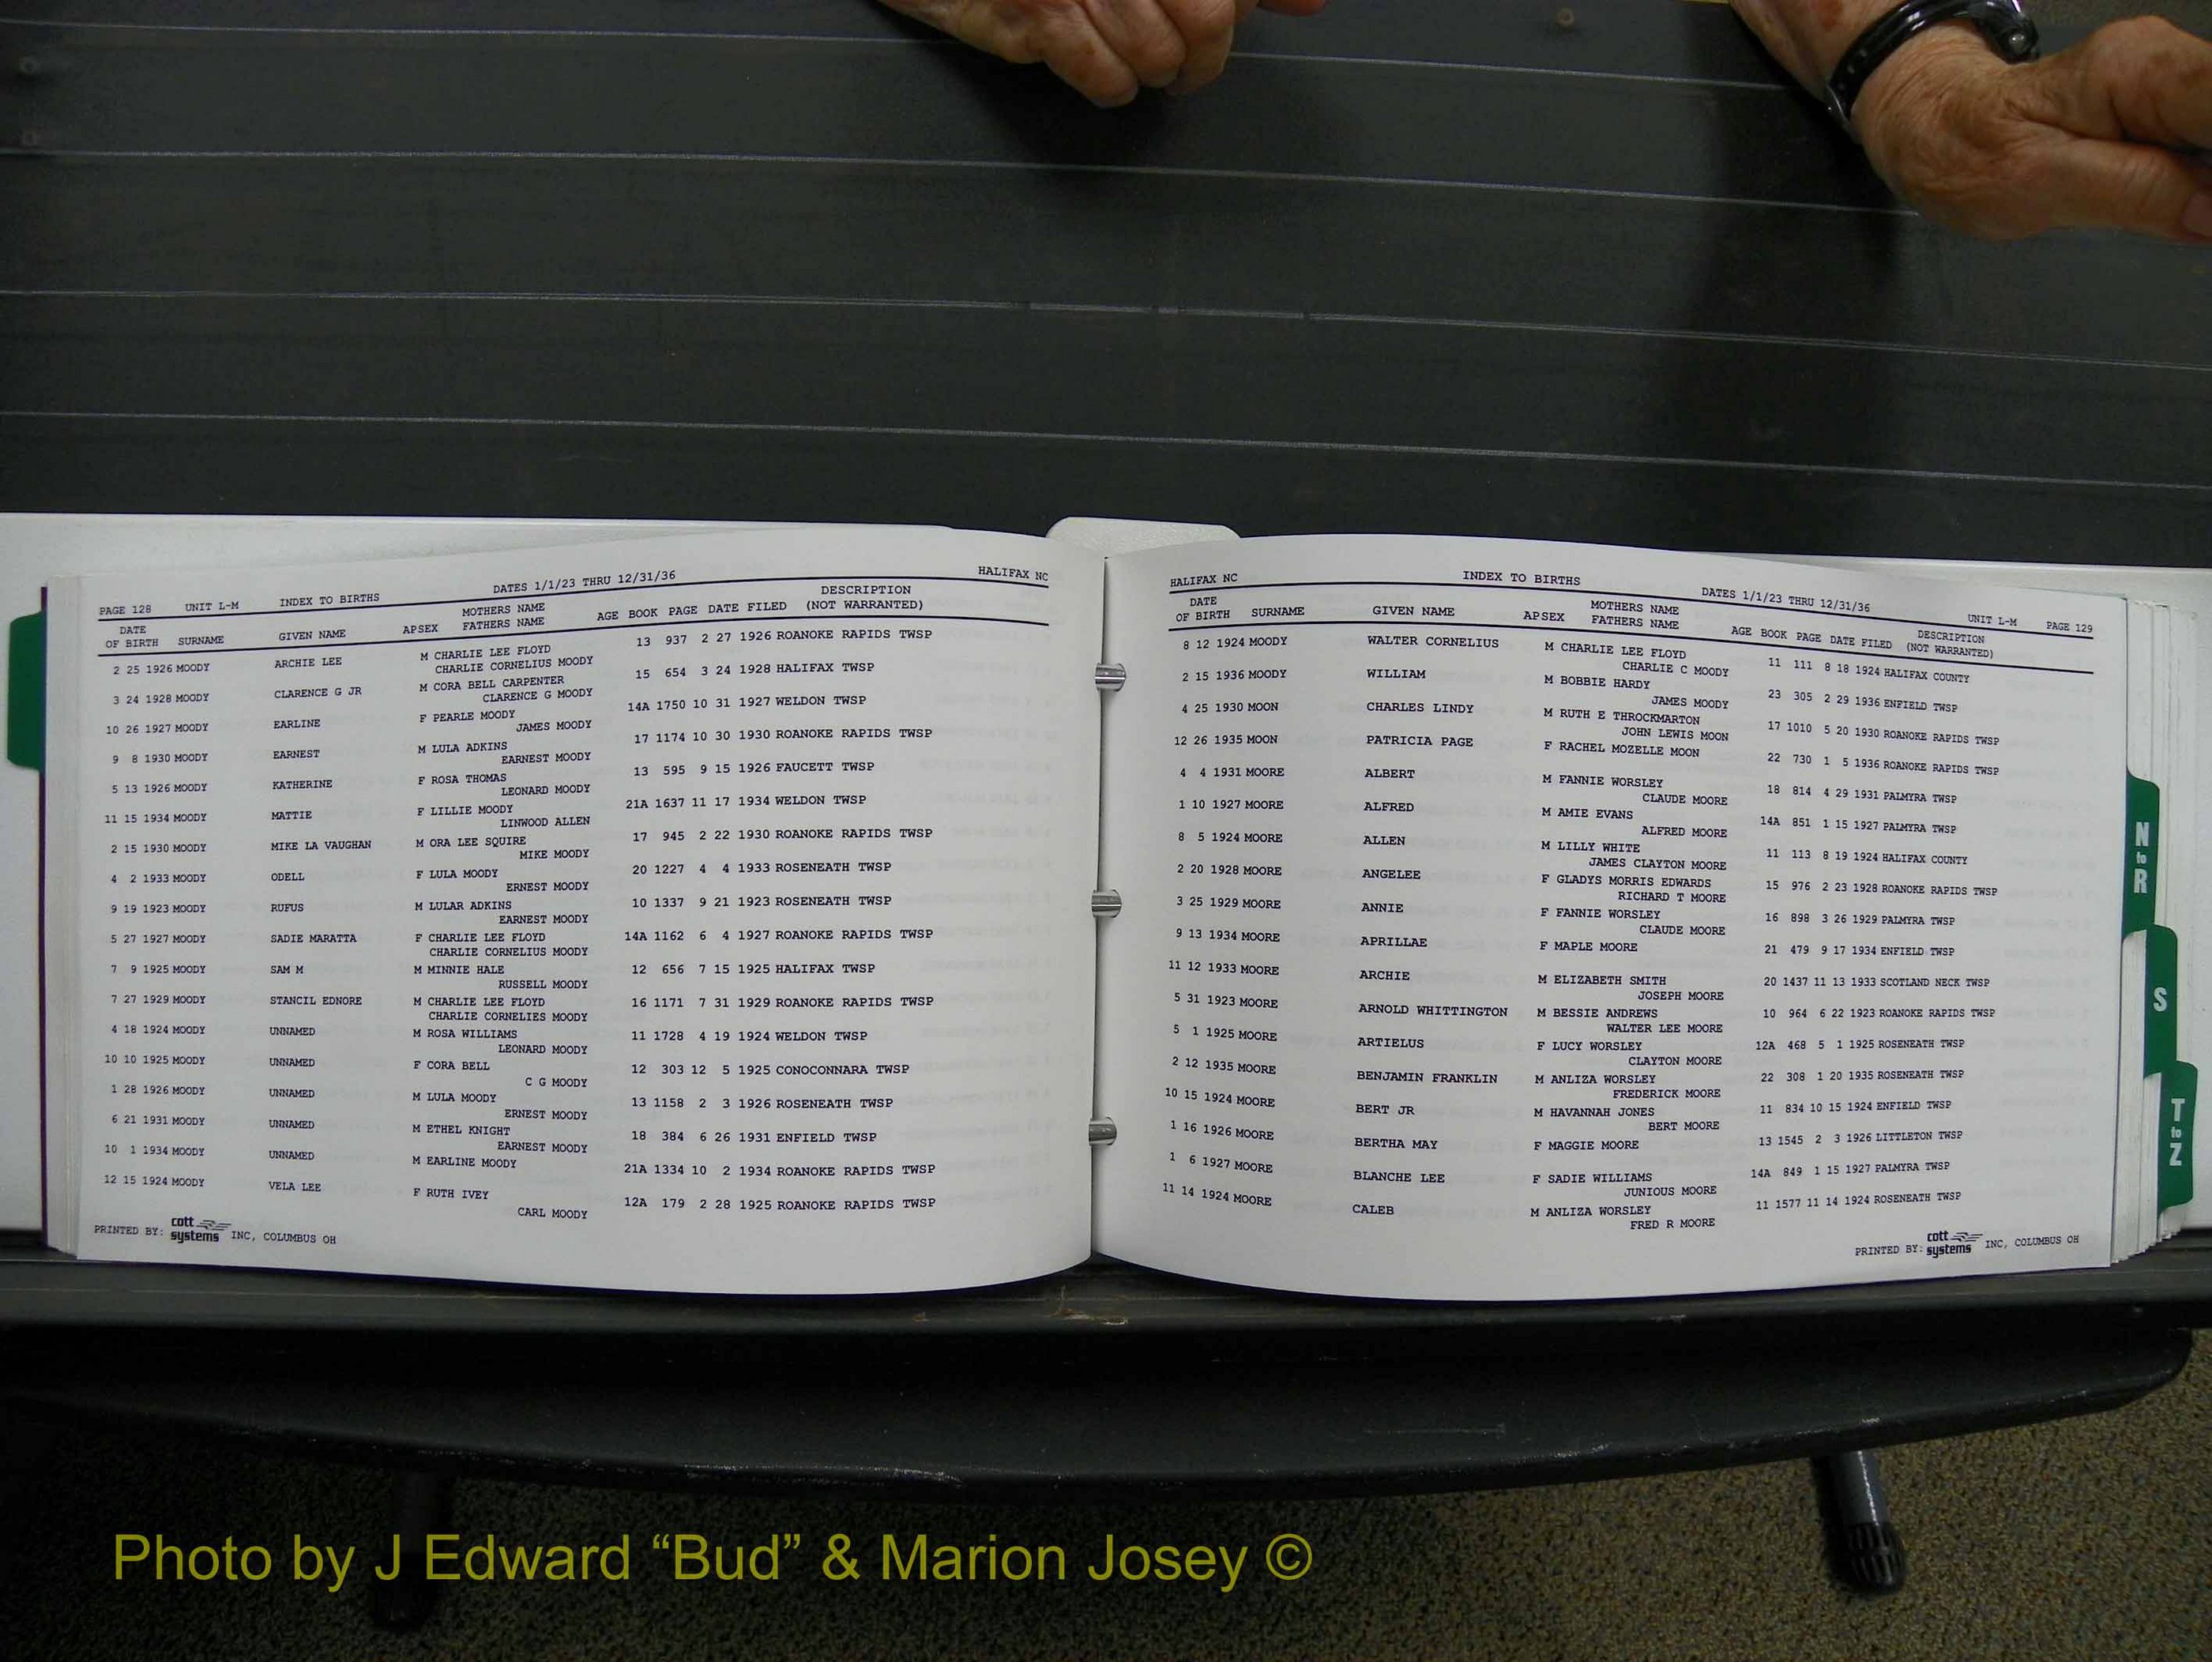 PAGE 128 UNIT L-M INDEX TO BIRTHS DATES 1/1/23 THRU 12/31/36 HALIFAX NC
DATE OF BIRTH SURNAME GIVEN NAME APSEX MOTHERS NAME FATHERS NAME AGE BOOK PAGE DATE FILED DESCRIPTION (NOT WARRANTED)
2 25 1926 MOODY ARCHIE LEE M CHARLIE LEE FLOYD 13 937 2 27 1926 ROANOKE RAPIDS TWSP
CHARLIE CORNELIUS MOODY
3 24 1928 MOODY CLARENCE G JR M CORA BELL CARPENTER 15 654 3 24 1928 HALIFAX TWSP
CLARENCE G MOODY
10 26 1927 MOODY EARLINE F PEARLE MOODY 14A 1750 10 31 1927 WELDON TWSP
JAMES MOODY
9 8 1930 MOODY EARNEST M LULA ADKINS 17 1174 10 30 1930 ROANOKE RAPIDS TWSP
EARNEST MOODY
5 13 1926 MOODY KATHERINE F ROSA THOMAS 13 595 9 15 1926 FAUCETT TWSP
LEONARD MOODY
11 15 1934 MOODY MATTIE F LILLIE MOODY 21A 1637 11 17 1934 WELDON TWSP
LINWOOD ALLEN
2 15 1930 MOODY MIKE LA VAUGHAN M ORA LEE SQUIRE 17 945 2 22 1930 ROANOKE RAPIDS TWSP
MIKE MOODY
4 2 1933 MOODY ODELL F LULA MOODY 20 1227 4 4 1933 ROSENEATH TWSP
ERNEST MOODY
9 19 1923 MOODY RUFUS M LULAR ADKINS 10 1337 9 21 1923 ROSENEATH TWSP
EARNEST MOODY
5 27 1927 MOODY SADIE MARATTA F CHARLIE LEE FLOYD 14A 1162 6 4 1927 ROANOKE RAPIDS TWSP
CHARLIE CORNELIUS MOODY
7 9 1925 MOODY SAM M M MINNIE HALE 12 656 7 15 1925 HALIFAX TWSP
RUSSELL MOODY
7 27 1929 MOODY STANCIL EDNORE M CHARLIE LEE FLOYD 16 1171 7 31 1929 ROANOKE RAPIDS TWSP
CHARLIE CORNELIES MOODY
4 18 1924 MOODY UNNAMED M ROSA WILLIAMS 11 1728 4 19 1924 WELDON TWSP
LEONARD MOODY
10 10 1925 MOODY UNNAMED F CORA BELL 12 303 12 5 1925 CONOCONNARA TWSP
C G MOODY
1 28 1926 MOODY UNNAMED M LULA MOODY 13 1158 2 3 1926 ROSENEATH TWSP
ERNEST MOODY
6 21 1931 MOODY UNNAMED M ETHEL KNIGHT 18 384 6 26 1931 ENFIELD TWSP
EARNEST MOODY
10 1 1934 MOODY UNNAMED M EARLINE MOODY 21A 1334 10 2 1934 ROANOKE RAPIDS TWSP
12 15 1924 MOODY VELA LEE F RUTH IVEY 12A 179 2 28 1925 ROANOKE RAPIDS TWSP
CARL MOODY
PRINTED BY: cott systems INC, COLUMBUS OH
HALIFAX NC INDEX TO BIRTHS DATES 1/1/23 THRU 12/31/36 UNIT L-M PAGE 129
DATE OF BIRTH SURNAME GIVEN NAME APSEX MOTHERS NAME FATHERS NAME AGE BOOK PAGE DATE FILED DESCRIPTION (NOT WARRANTED)
8 12 1924 MOODY WALTER CORNELIUS M CHARLIE LEE FLOYD 11 111 8 18 1924 HALIFAX COUNTY
CHARLIE C MOODY
2 15 1936 MOODY WILLIAM M BOBBIE HARDY 23 305 2 29 1936 ENFIELD TWSP
JAMES MOODY
4 25 1930 MOON CHARLES LINDY M RUTH E THROCKMARTON 17 1010 5 20 1930 ROANOKE RAPIDS TWSP
JOHN LEWIS MOON
12 26 1935 MOON PATRICIA PAGE F RACHEL MOZELLE MOON 22 730 1 5 1936 ROANOKE RAPIDS TWSP
4 4 1931 MOORE ALBERT M FANNIE WORSLEY 18 814 4 29 1931 PALMYRA TWSP
CLAUDE MOORE
1 10 1927 MOORE ALFRED M AMIE EVANS 14A 851 1 15 1927 PALMYRA TWSP
ALFRED MOORE
8 5 1924 MOORE ALLEN M LILLY WHITE 11 113 8 19 1924 HALIFAX COUNTY
JAMES CLAYTON MOORE
2 20 1928 MOORE ANGELEE F GLADYS MORRIS EDWARDS 15 976 2 23 1928 ROANOKE RAPIDS TWSP
RICHARD T MOORE
3 25 1929 MOORE ANNIE F FANNIE WORSLEY 16 898 3 26 1929 PALMYRA TWSP
CLAUDE MOORE
9 13 1934 MOORE APRILLAE F MAPLE MOORE 21 479 9 17 1934 ENFIELD TWSP
11 12 1933 MOORE ARCHIE M ELIZABETH SMITH 20 1437 11 13 1933 SCOTLAND NECK TWSP
JOSEPH MOORE
5 31 1923 MOORE ARNOLD WHITTINGTON M BESSIE ANDREWS 10 964 6 22 1923 ROANOKE RAPIDS TWSP
WALTER LEE MOORE
5 1 1925 MOORE ARTIELUS F LUCY WORSLEY 12A 468 5 1 1925 ROSENEATH TWSP
CLAYTON MOORE
2 12 1935 MOORE BENJAMIN FRANKLIN M ANLIZA WORSLEY 22 308 1 20 1935 ROSENEATH TWSP
FREDERICK MOORE
10 15 1924 MOORE BERT JR M HAVANNAH JONES 11 834 10 15 1924 ENFIELD TWSP
BERT MOORE
1 16 1926 MOORE BERTHA MAY F MAGGIE MOORE 13 1545 2 3 1926 LITTLETON TWSP
1 6 1927 MOORE BLANCHE LEE F SADIE WILLIAMS 14A 849 1 15 1927 PALMYRA TWSP
JUNIOUS MOORE
11 14 1924 MOORE CALEB M ANLIZA WORSLEY 11 1577 11 14 1924 ROSENEATH TWSP
FRED R MOORE
PRINTED BY: cott systems INC, COLUMBUS OH
N to R
S
T to Z
Photo by J Edward “Bud” & Marion Josey ©